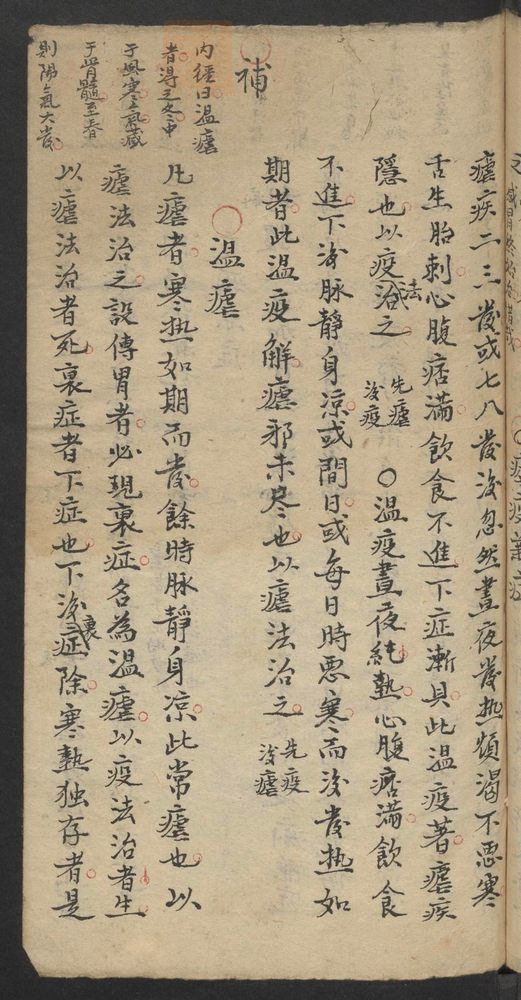 瘧疾二三發或七八發後忽然晝夜發热煩渴不惡寒
舌生胎刺心腹痞滿飲食不進下症漸具此温疫著瘧疾
隱也以疫法治之 先瘧後疫 ○温疫晝夜純熱心腹痞滿飲食
不進下後脉靜身凉或間日或每日時悪寒而後發热如
期者此温疫解瘧邪未尽也以瘧法治之 先疫後瘧
○温瘧
凡瘧者寒热如期而發餘時脉靜身凉此常瘧也以
瘧法治之設傳胃者必現裏症名為温瘧以疫法治者生
以瘧法治者死裏症者下症也下後裏症除寒熱独存者是
補
内徑曰温瘧
者得之冬中
于風寒氣藏
于骨髓至春
則陽氣大發